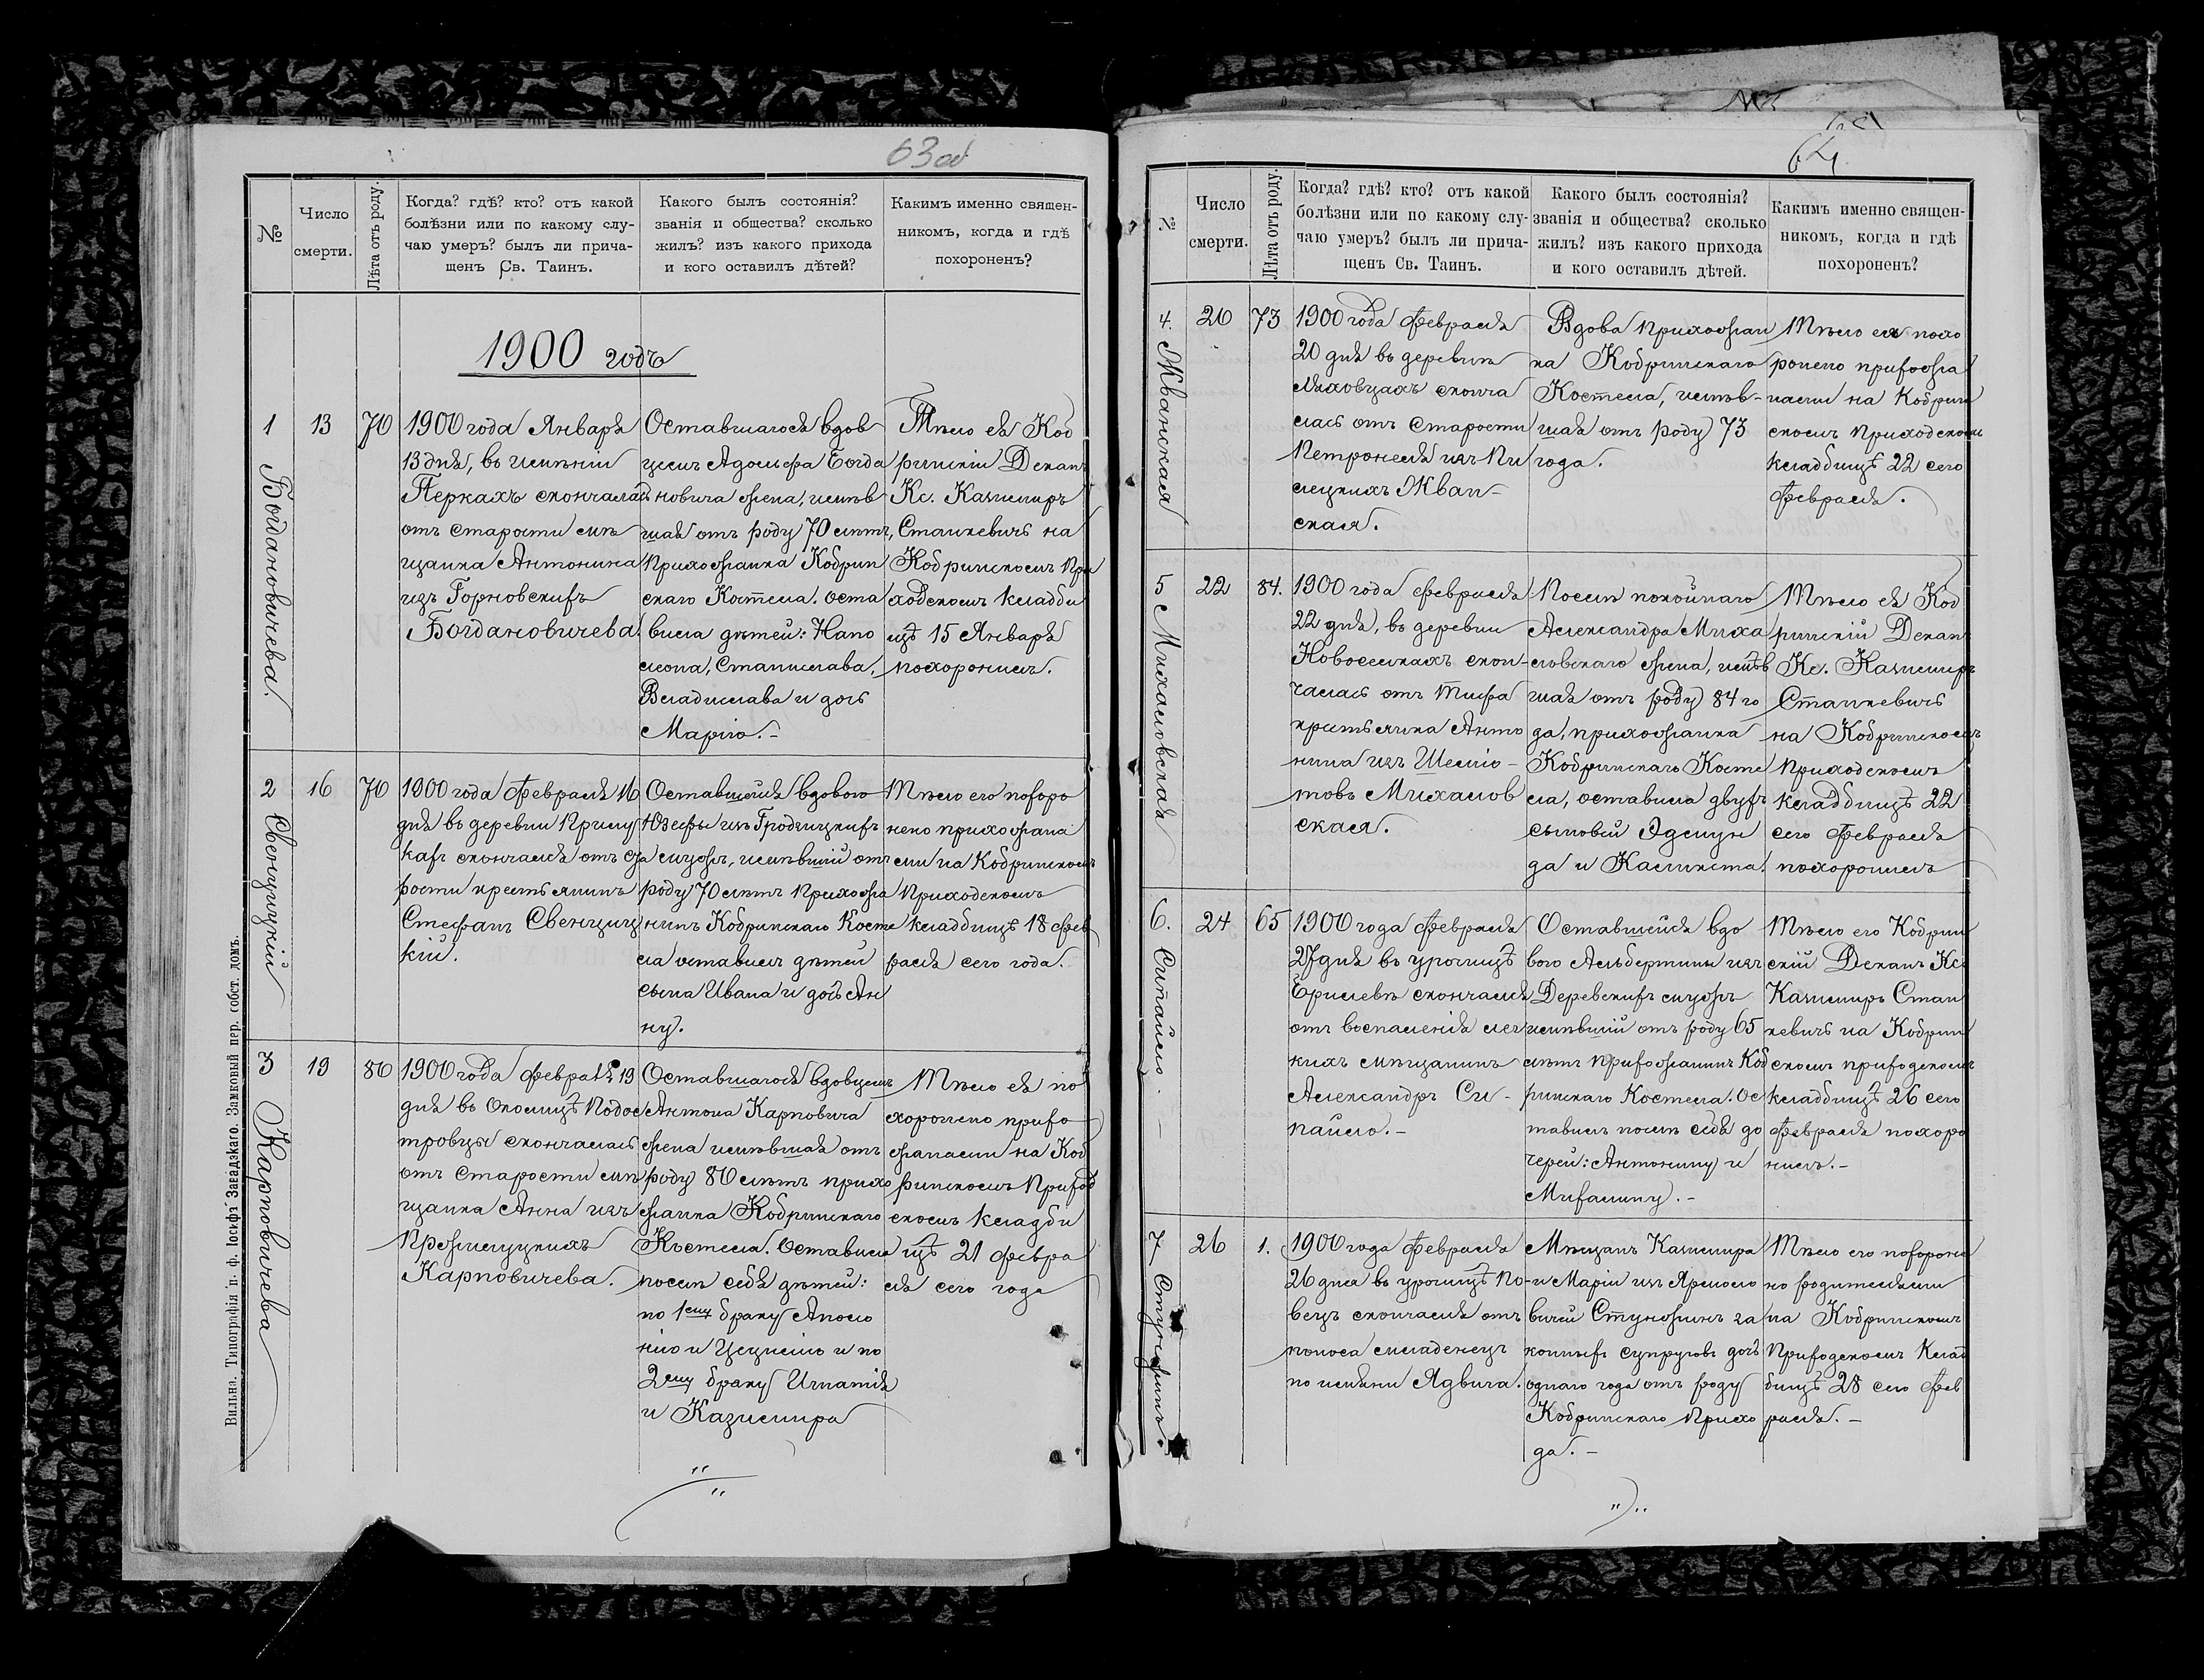 63 об
№
Число
смерти.
Лѣта отъ роду.
Когда? гдѣ? кто? отъ какой
болѣзни или по какому слу-
чаю умеръ? былъ ли прича-
щенъ Св. Таинъ.
Какого былъ состоянія?
званія и общества? сколько
жилъ? изъ какого прихода
и кого оставилъ дѣтей?
Какимъ именно священ-
никомъ, когда и гдѣ
похороненъ?
1900 годъ
1
Богдановичева.
13
70
1900 года Января
13 дня, въ имѣніи
Перкахъ скончалась
отъ старости мѣ
щанка Антонина
изъ Горновскихъ
Богдановичева.
Оставшагося вдов
цемъ Адольфа Богда
новича жена, имѣв
шая отъ роду 70 лѣтъ,
Прихожанка Кобрин
скаго Костела. Оста
вила дѣтей: Напо
леона, Станислава,
Владислава и дочь
Марію.-
Тѣло ея Коб
ринскій Деканъ
Кс. Казимиръ
Станкевичъ на
Кобринскомъ При
ходскомъ кладби
щѣ 15 Января
похоронилъ.
2
Свенцицкій
16
70
1900 года Февраля 16
дня въ деревни Прилу
кахъ скончался отъ ста
рости крестьянинъ
Стефанъ Свенциц
кій.
Оставшейся вдовою
Юзефы изъ Гродзицкихъ
мужъ, имѣвшій отъ
роду 70 лѣтъ Прихожа
нинъ Кобринскаго Косте
ла оставилъ дѣтей
сына Ивана и дочь Ан
ну.
Тѣло его похоро
нено прихожана
ми на Кобринскомъ
Приходскомъ
кладбищѣ 18 фев
раля сего года.
3
Карповичева
19
80
1900 года Февраля 19
дня въ Околицѣ Подос
тровцы скончалась
отъ старости мѣ
щанка Анна изъ
Карповичева.
Оставшагося вдовцемъ
Антона Карповича
жена имѣвшая отъ
роду 80 лѣтъ прихо
жанка Кобринскаго
Костела. Оставила
послѣ себя дѣтей:
по 1ему браку Аполо
нію и Цецилію и по
2ему браку Игнатія
и Казимира
Тѣло ея по
хоронено прихо
жанами на Коб
ринскомъ Приход
скомъ кладби
щѣ 21 февра
ля сего года
Вильна. Типографія п. ф. Іосифъ Завадзкаго. Замковый пер. собст. домъ.
64
№
Число
смерти.
Лѣта отъ роду.
Когда? гдѣ? кто? отъ какой
болѣзни или по какому слу-
чаю умеръ? былъ ли прича-
щенъ Св. Таинъ.
Какого былъ состоянія?
званія и общества? сколько
жилъ? изъ какого прихода
и кого оставилъ дѣтей.
Какимъ именно священ-
никомъ, когда и гдѣ
похороненъ?
4.
Жванская
20
73
1900 года Февраля
20 дня въ деревнѣ
Ляховцахъ сконча
лась отъ старости
Петронеля изъ Пи
лецкихъ Жван-
ская.
Вдова прихожан
ка Кобринскаго
Костела, имѣв-
шая отъ роду 73
года.
Тѣло ея похо
ронено прихожа
нами на Кобрин
скомъ Приходскомъ
кладбищѣ 22 сего
Февраля.
5
Михаловская
22
84.
1900 года Февраля
22 дня, въ деревни
Новоселкахъ скон-
чалась отъ тифа
крестьянка Анто
нина изъ Шелю-
товъ Михалов
ская.
Послѣ покойнаго
Александра Миха
ловскаго жена, имѣв
шая отъ роду 84 го
да, прихожанка
Кобринскаго Косте
ла, оставила двухъ
сыновей Эдмун
да и Каликста.
Тѣло ея Коб
ринскій Деканъ
Кс. Казимиръ
Станкевичъ
на Кобринскомъ
Приходскомъ
кладбищѣ 22
сего Февраля
похоронилъ
6.
Сипайло.
24
65
1900 года Февраля
27 дня въ урочищѣ
скончался
отъ воспаленія лег
кихъ мѣщанинъ
Александръ Си-
пайло.-
Оставшейся вдо
вою Альбертины изъ
Деревскихъ мужъ
имѣвшій отъ роду 65
лѣтъ прихожанинъ Коб
ринскаго Костела. Ос
тавилъ послѣ себя до
черей: Антонину и
Михалину.-
Тѣло его Кобрин
скій Деканъ Кс.
Казимиръ Стан
кевичъ на Кобрин
скомъ приходскомъ
кладбищѣ 26 сего
Февраля похоро
нилъ.-
7
Стунжинъ.
26
1.
1900 года Февраля
26 дня въ урочищѣ По-
вецъ скончался отъ
поноса младенецъ
по имени Ядвига.
Мѣщанъ Казимира
и Маріи изъ Ярмоло
вичей Стунжинъ за
конныхъ супруговъ дочь
однаго года отъ роду
Кобринскаго Прихо
да.-
Тѣло его похороне
но родителями
на Кобринскомъ
Приходскомъ Клад
бищѣ 28 сего Фев
раля.-